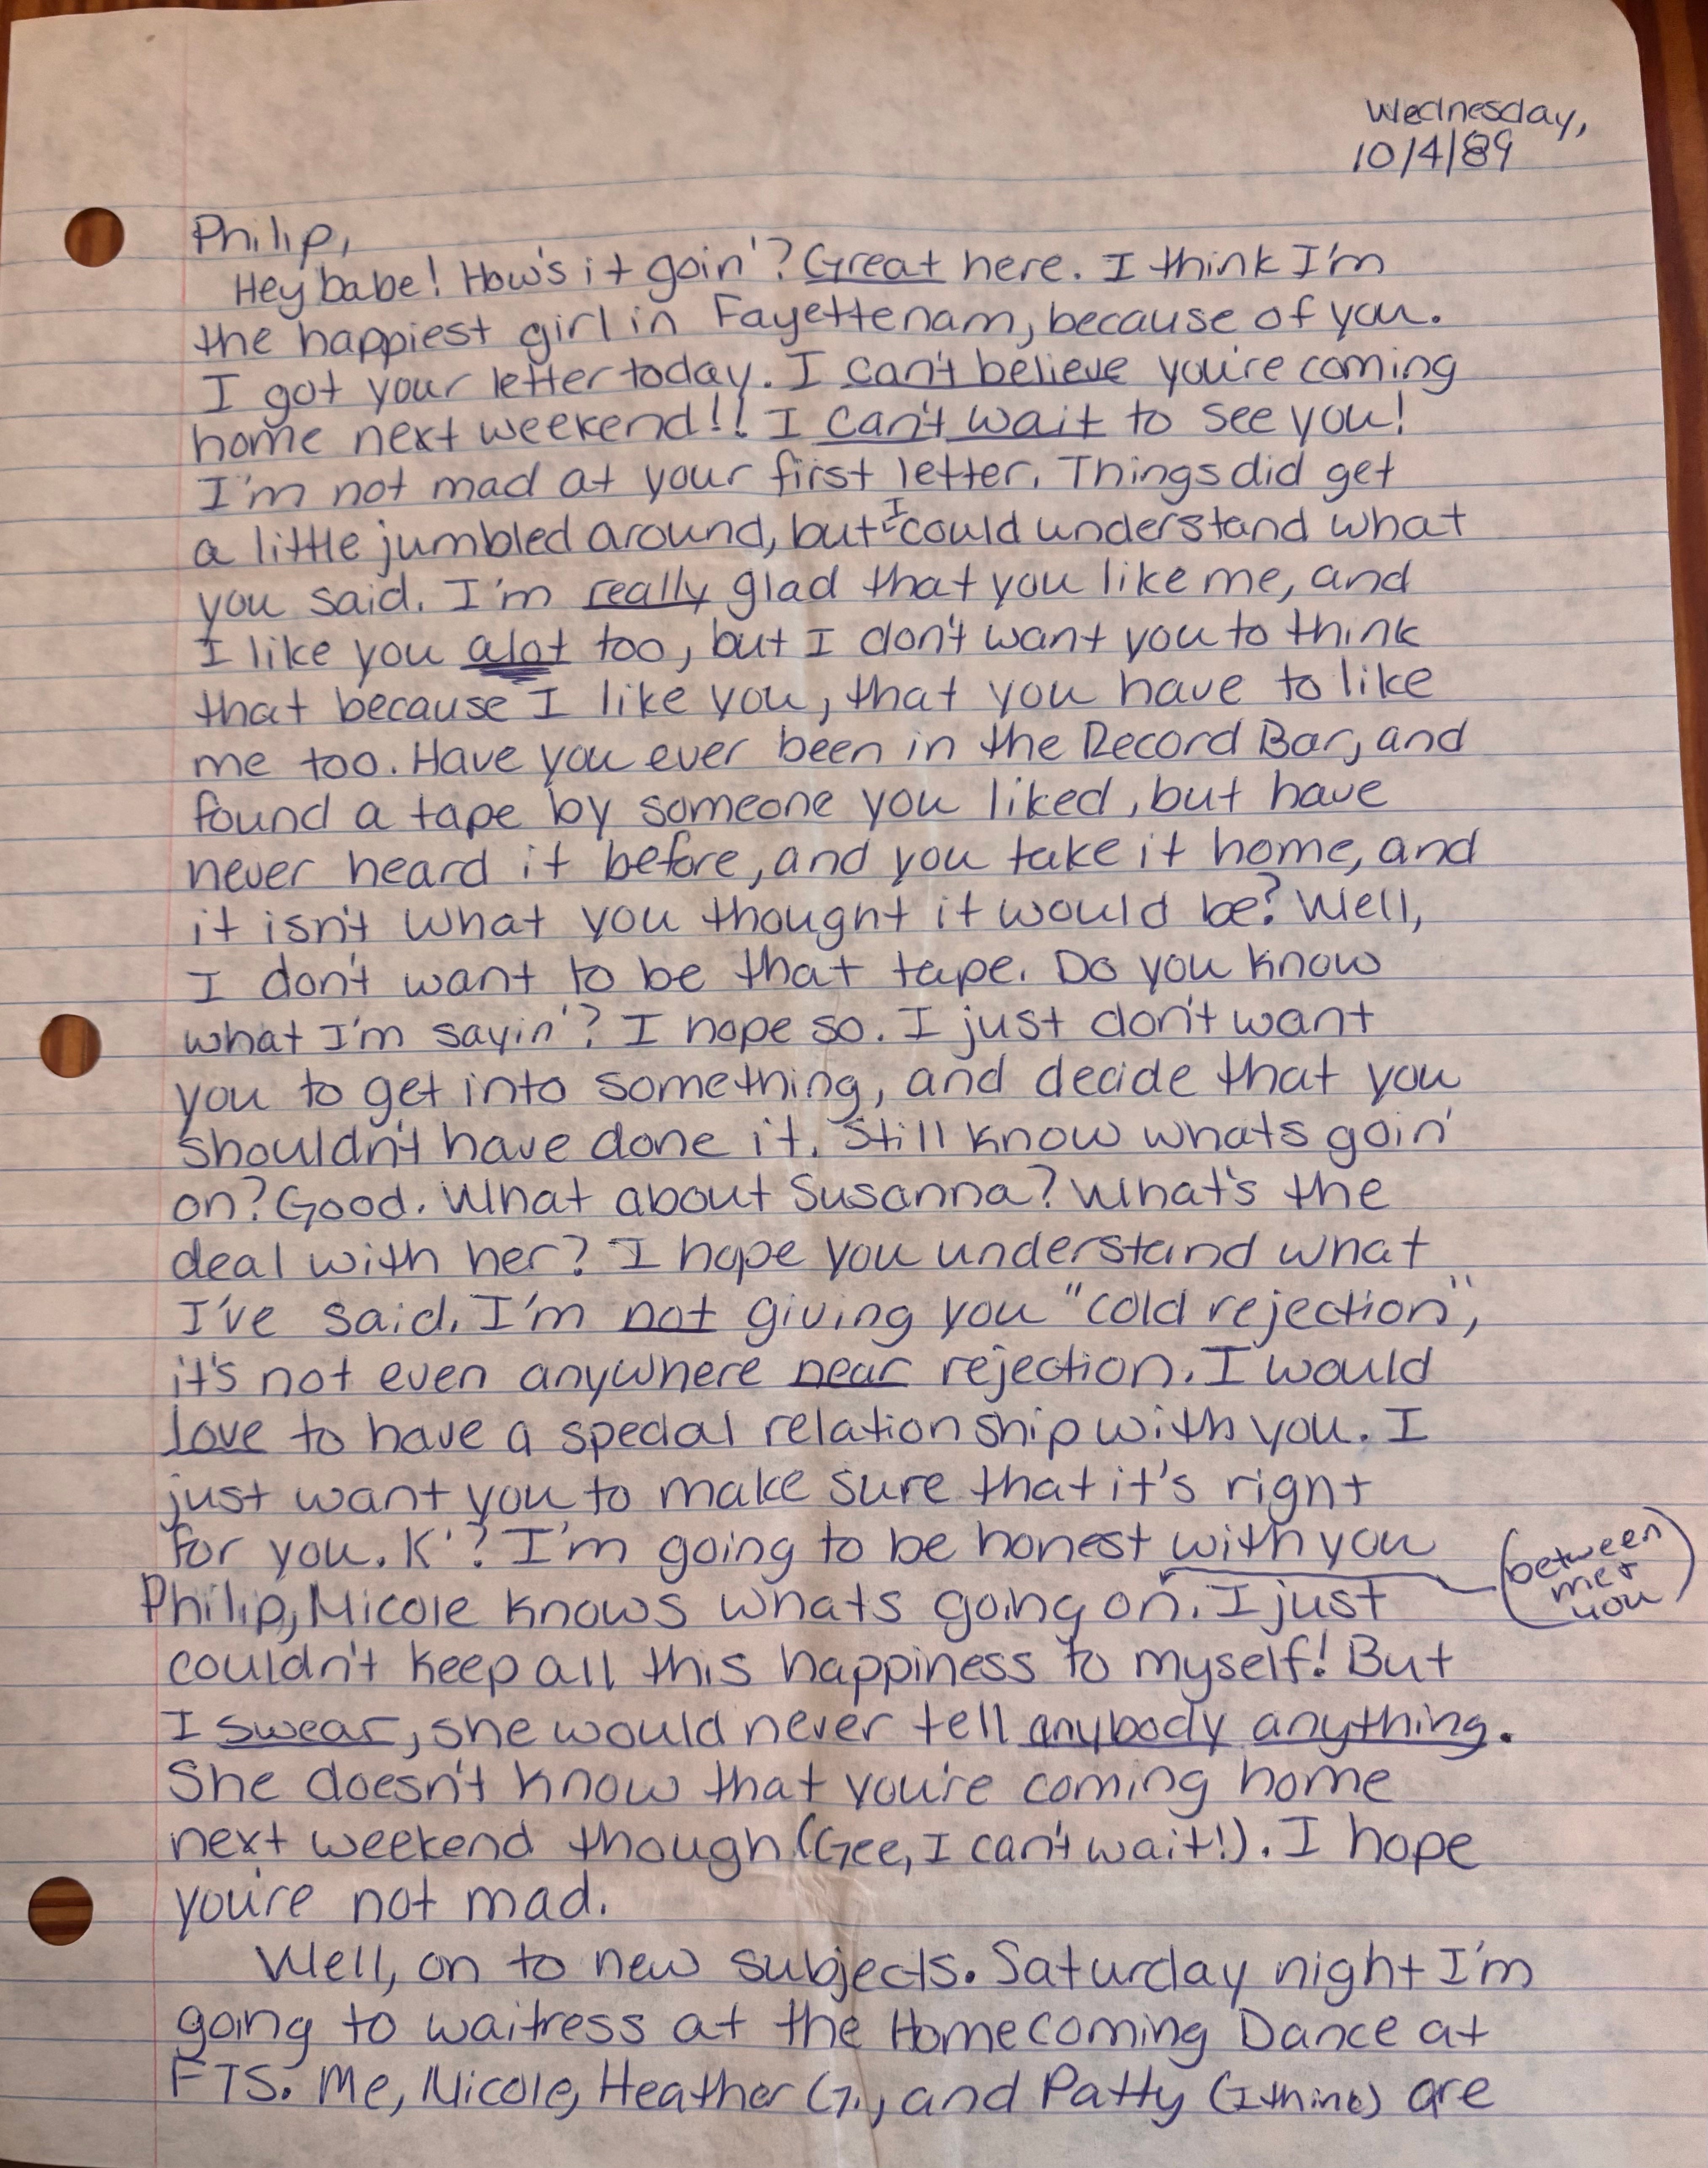 Wednesday,
10/4/89
Philip,
Hey babe! How's it goin'? Great here. I think I'm
the happiest girl in Fayettenam, because of you.
I got your letter today. I can't believe you're coming
home next weekend!! I can't wait to see you!
I'm not mad at your first letter. Things did get
a little jumbled around, but I could understand what
you said. I'm really glad that you like me, and
I like you alot too, but I don't want you to think
that because I like you, that you have to like
me too. Have you ever been in the Record Bar, and
found a tape by someone you liked, but have
never heard it before, and you take it home, and
it isn't what you thought it would be? Well,
I don't want to be that tape. Do you know
what I'm sayin'? I hope so. I just don't want
you to get into something, and decide that you
shouldn't have done it. Still know whats goin'
on? Good. What about Susanna? What's the
deal with her? I hope you understand what
I've said. I'm not giving you "cold rejection",
it's not even anywhere near rejection. I would
love to have a special relationship with you. I
just want you to make sure that it's right
for you. K'? I'm going to be honest with you
(between
me +
you)
Philip, Nicole knows whats going on. I just
couldn't keep all this happiness to myself! But
I swear, she would never tell anybody anything.
She doesn't know that you're coming home
next weekend though (Gee, I can't wait!). I hope
you're not mad.
Well, on to new subjects. Saturday night I'm
going to waitress at the Homecoming Dance at
FTS. Me, Nicole, Heather G., and Patty (I think) are